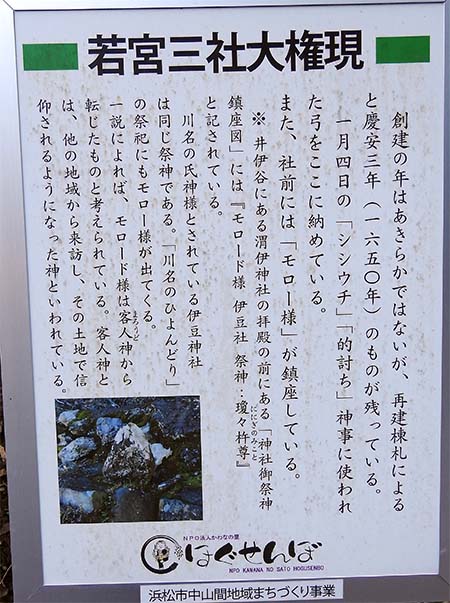 若宮三社大権現
創建の年はあきらかではないが、再建棟札による
と慶安三年(一六五〇年)のものが残っている。
一月四日の「シシウチ」「的討ち」神事に使われ
た弓をここに納めている。
また、社前には「モロー様」が鎮座している。
※ 井伊谷にある渭伊神社の拝殿の前にある「神社御祭神
鎮座図」には『モロード様 伊豆社 祭神:瓊々杵尊』
ににぎのみこと
と記されている。
川名の氏神様とされている伊豆神社
は同じ祭神である。「川名のひよんどり」
の祭祀にもモロー様が出てくる。
一説によれば、モロード様は客人神から
まろうど
転じたものと考えられている。客人神と
は、他の地域から来訪し、その土地で信
仰されるようになった神といわれている。
NPO法人かわなの里
はぐせんぼ
NPO KAWANA NO SATO HOGUSENBO
浜松市中山間地域まちづくり事業